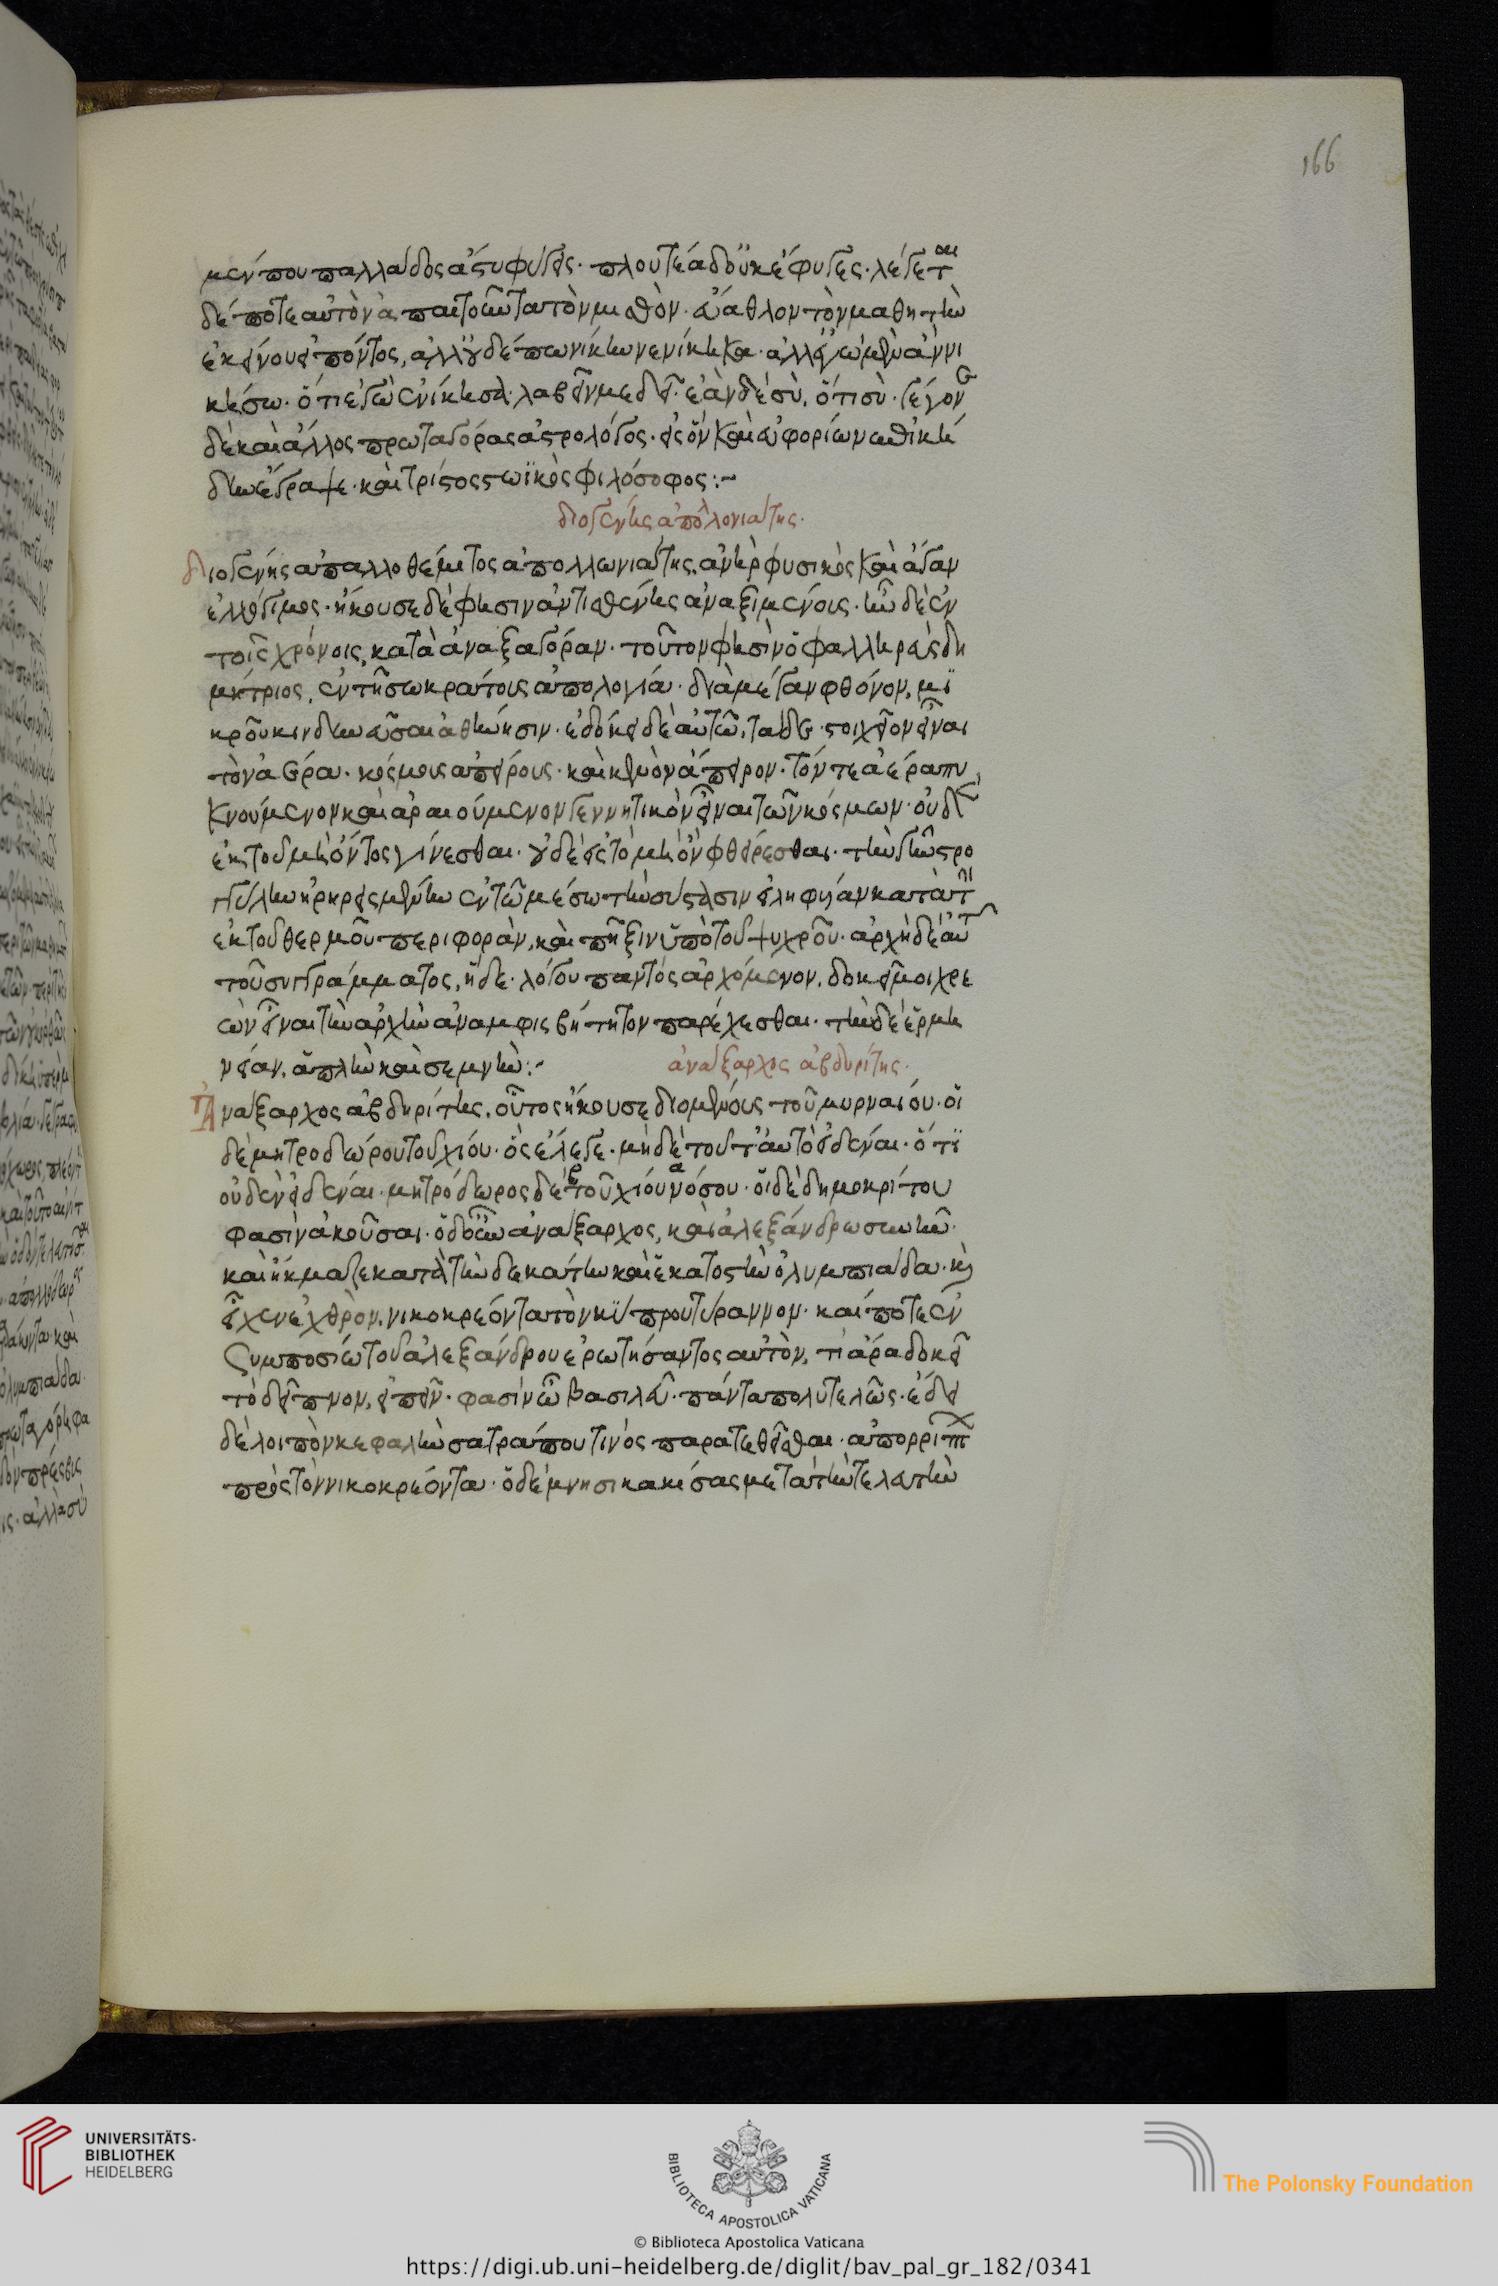 166
μέν που παλλάδος ἄστυ φύγες· πλουτέα δ' οὐκ ἔφυγες· λέγεται
δέ ποτε αὐτὸν ἀπαιτοῦντα τὸν μισθὸν· εὔαθλον τὸν μαθητὴν
ἐκείνου εἰπόντος, ἀλλ' οὐδέπω νίκην νενίκηκα· ἀλλ' ἐγὼ μὲν ἂν νι
κήσω· ὅτι ἐγὼ ἐνίκησα· λαβεῖν με δεῖ· ἐὰν δὲ σὺ, ὅτι σύ· γέγονε
δὲ καὶ ἄλλος πρωταγόρας ἀστρολόγος· εἰς ὃν καὶ εὐφορίων ἐπική
δειον ἔγραψε· καὶ τρίτος στωϊκὸς φιλόσοφος:~
διογένης ἀπολονιάτης·
Διογένης ἀπαλλοθέμιτος ἀπολλωνιάτης, ἀνὴρ φυσικὸς καὶ ἄγαν
ἐλλόγιμος· ἤκουσε δὲ φησὶν ἀντισθένης ἀναξιμένους· ἦν δὲ ἐν
τοῖς χρόνοις, κατὰ ἀναξαγόραν· τοῦτον φησὶν ὁ φαλληρεὺς δη
μήτριος, ἐν τῇ σωκράτους ἀπολογία· διὰ μέγαν φθόνον, μι
κροῦ κινδυνεῦσαι ἀθήνησιν· ἐδόκει δὲ αὐτῶ, τάδε· στοιχεῖον εἶναι
τὸν ἀέρα· κόσμους ἀπείρους· καὶ κενὸν ἄπειρον· τόν τε ἀέρα πυ
κνούμενον καὶ ἀραιούμενον γεννητικὸν εἶναι τῶν κόσμων· οὐδὲν
ἐκ τοῦ μὴ ὄντος γίνεσθαι· οὐδὲ εἰς τὸ μὴ ὂν φθείρεσθαι· τὴν γῆν στρο
γγύλην ἠρηρεισμένην ἐν τῶ μέσω τὴν σύστασιν εἰληφυίαν κατὰ τὴν
ἐκ τοῦ θερμοῦ περιφορὰν, καὶ πῆξιν ὑπὸ τοῦ ψυχροῦ· ἀρχὴ δὲ αὐτῶ
τοῦ συγγράμματος, ἥδε· λόγου παντὸς ἀρχόμενον, δοκεῖ μοι χρε
ὼν εἶναι τὴν ἀρχὴν ἀναμφισβήτητον παρέχεσθαι· τὴν δὲ ἑρμη
νείαν, ἁπλῆν καὶ σεμνὴν:~ ἀνάξαρχος ἀβδυρίτης·
Ἀνάξαρχος ἀβδηρίτης, οὗτος ἤκουσε διομένους τοῦ μυρναίου· οἱ
δὲ μητροδώρου τοῦ χίου· ὃς ἔλεγε· μηδὲ τοῦτ' αὐτὸ εἰδέναι· ὅτι
οὐδὲν εἰδέναι· μητρόδωρος δὲ τοῦ χίου νόσου· οἱ δὲ δημοκρίτου
φασὶν ἀκοῦσαι· ὁ δ' οὖν ἀνάξαρχος, καὶ ἀλεξάνδρω συνῆν·
καὶ ἤκμαζε κατὰ τὴν δεκάτην καὶ ἑκατοστὴν ὀλυμπιάδα· καὶ
εἶχεν ἐχθρὸν, νικοκρέοντα τὸν κύπρου τύραννον· καί ποτε ἐν
συμποσίω τοῦ ἀλεξάνδρου ἐρωτήσαντος αὐτὸν, τί ἄρα δοκεῖ
τὸ δεῖπνον, εἰπεῖν· φασὶν ὦ βασιλεῦ· πάντα πολυτελῶς· ἔδει
δὲ λοιπὸν κεφαλὴν σατράπου τινὸς παρατεθεῖσθαι· ἀπορρίπτων
πρὸς τὸν νικοκρέοντα· ὁ δὲ μνησικακήσας μετὰ τὴν τελευτὴν
UNIVERSITÄTS-
BIBLIOTHEK
HEIDELBERG
BIBLIOTECA APOSTOLICA VATICANA
The Polonsky Foundation
© Biblioteca Apostolica Vaticana
https://digi.ub.uni-heidelberg.de/diglit/bav_pal_gr_182/0341